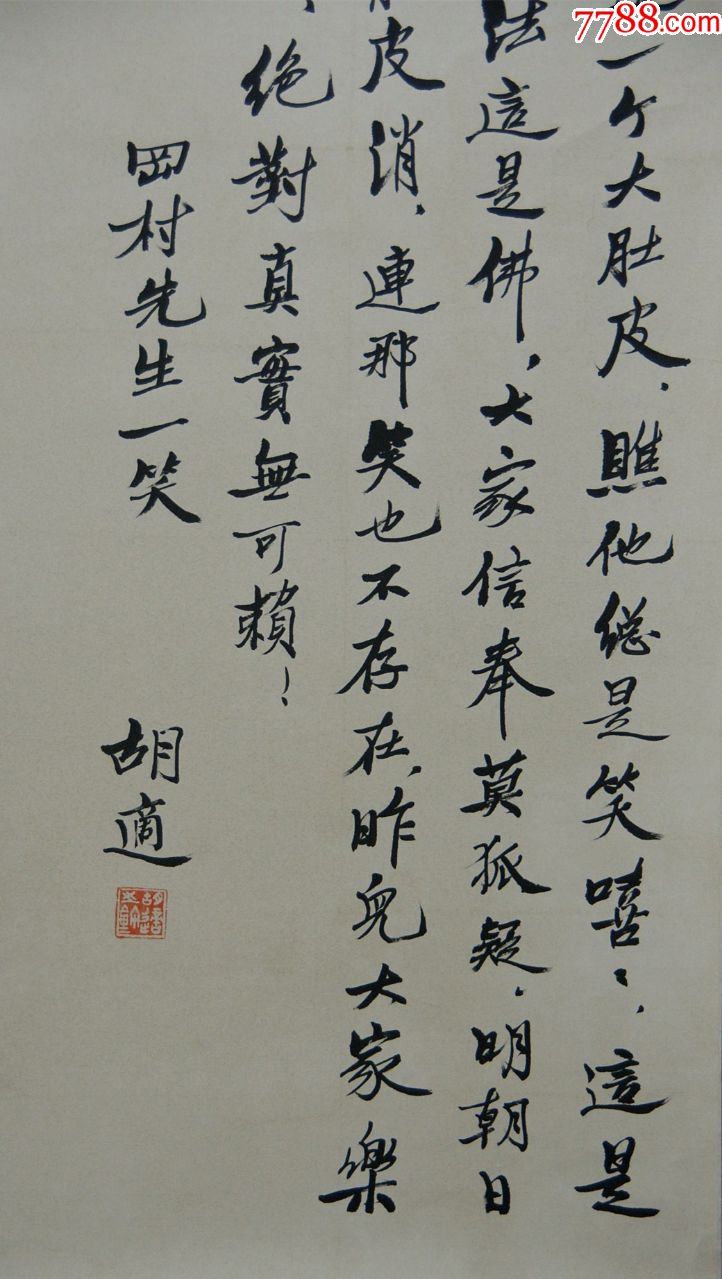 7788.com
一个大肚皮、瞧他總是笑嘻〻、這是
法這是佛、大家信奉莫狐疑、明朝日
皮消、連那笑也不存在、昨兒大家樂
絕對真實無可賴！
岡村先生一笑
胡適